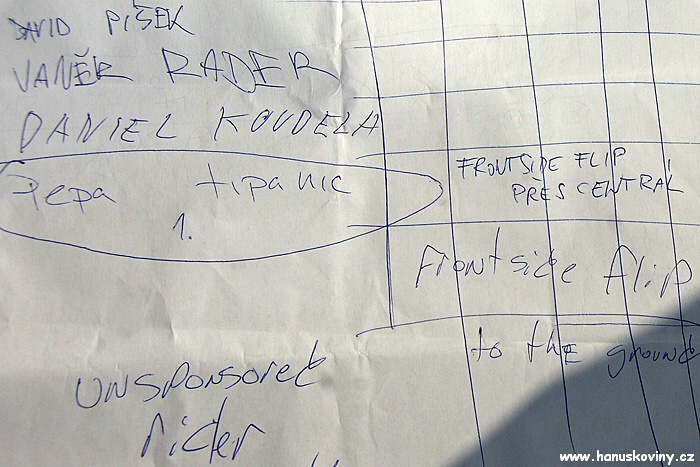 DAVID PÍŠEK
VANĚK RADER
DANIEL KOUDELA
Pepa tipanic
1.
FRONTSIDE FLIP
PŘES CENTRÁL
Frontside flip
to the ground
unsponsored
rider
www.hanuskoviny.cz